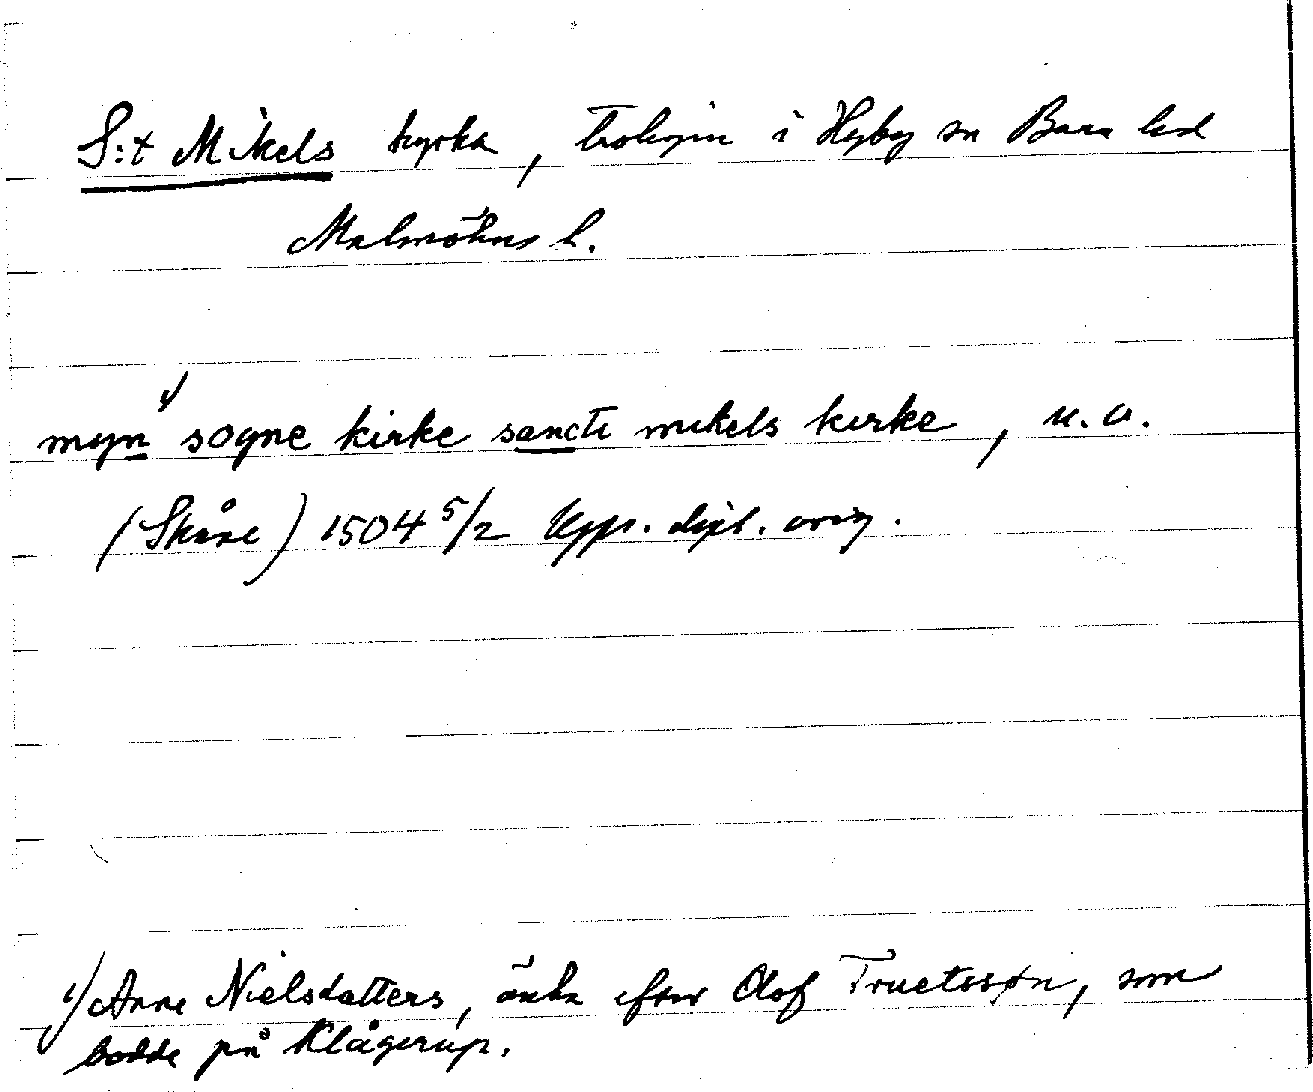 S:t Mikels kyrka, troligen i Hyby sn Bara hd
Malmöhus l.
1/
myn sogne kirke sancti mikels kirke, u.o.
(Skåne) 1504 5/2 Upps. dipl. orig.
1/ Anne Nielsdatters, änka efter Olof Truetssøn, som
bodde på Klågerup.